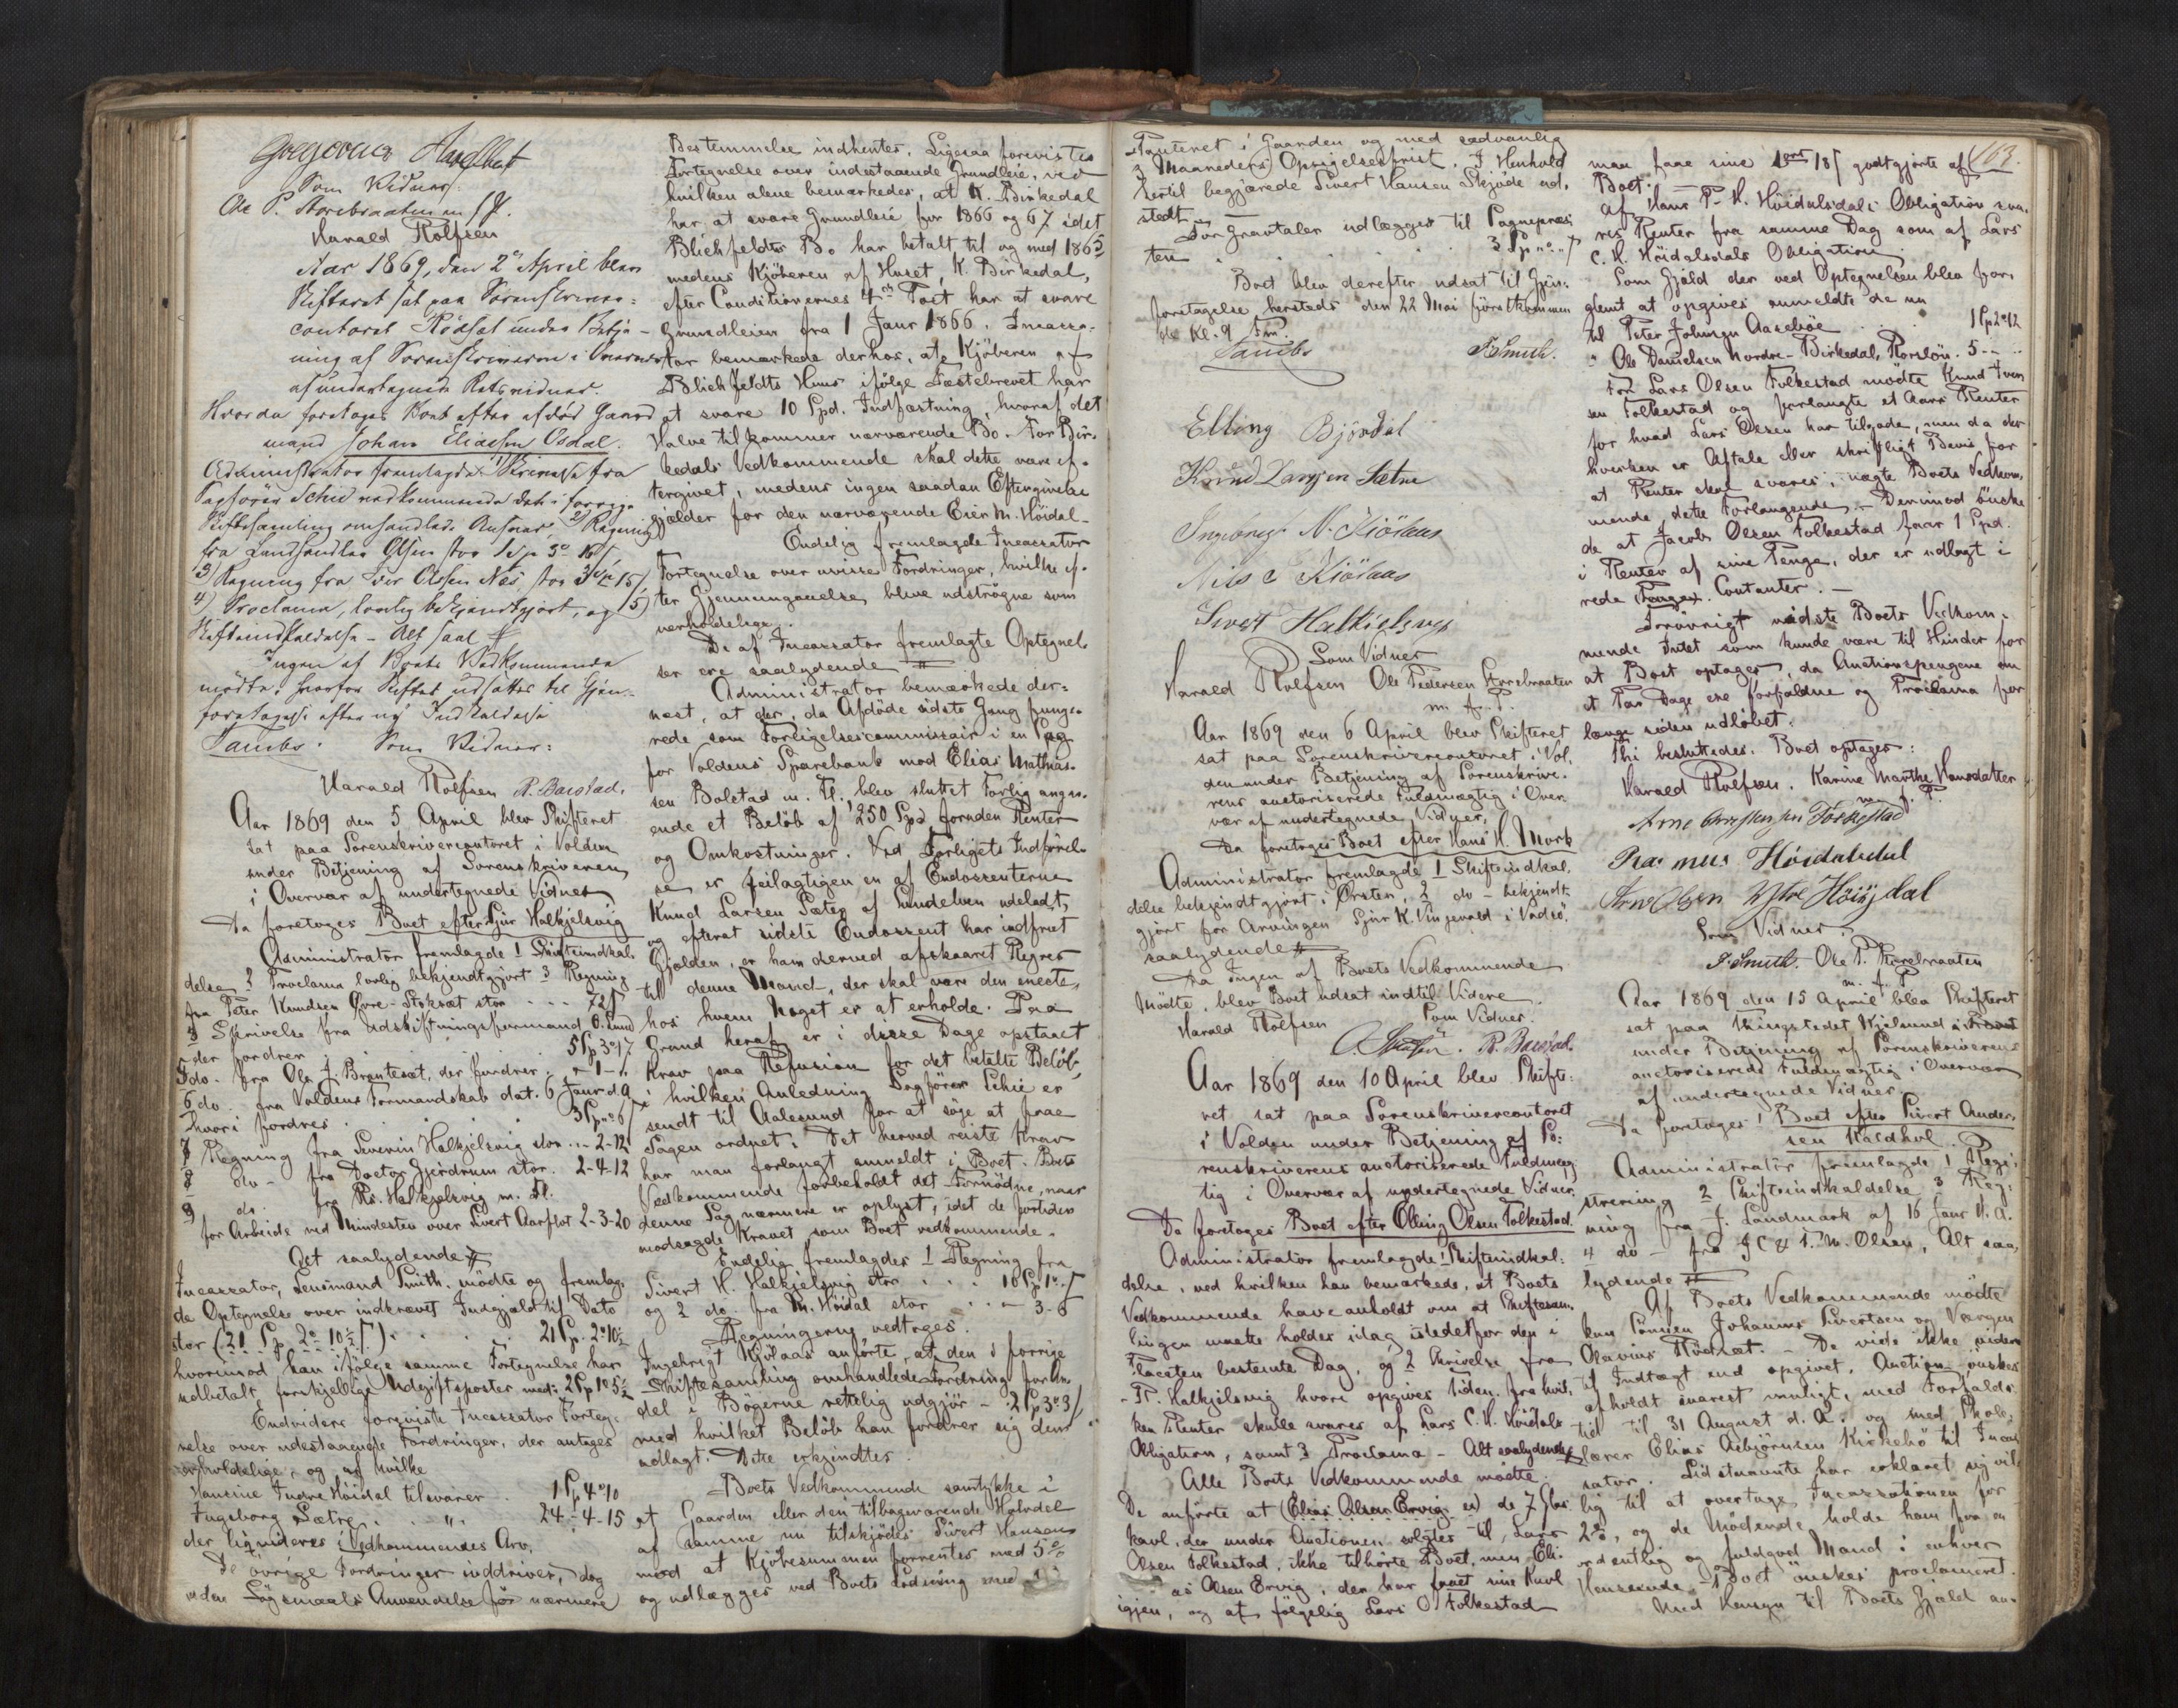 Som Vidner:
Ole P. Storebraaten m f P.
Harald Rolfsen
Aar 1869, den 2den April blev
Skifteret sat paa Sorenskriver=
contoret Rödsæt under Betje-
ning af Sorenskriveren i Overvær
af undertegnede Retsvidner.
Hvorda foretoges Boet efter afdød Gaard
mand Johan Eliassen Osdal.
Administrator fremlagde 1) Skrivelse fra
Sagfører Schie vedkommende det i forrige
Skiftesamling omhandlede Ansvar, 2) Regning
fra Landhandler Olsen stor
3) Regning fra Iver Olsen Næs stor
4) Proclama, lovlig bekjendtgjort, og 5)
Skifteindkaldelse - Alt saal #
Ingen af Boets Vedkommende
mødte, hvorfor Skiftet udsattes til Gjen-
foretagelse efter ny Indkaldelse
Jacobs. Som Vidner:
Harald Rolfsen R. Barstad.
Aar 1869 den 5 April blev Skifteret
sat paa Sorenskrivercontoret i Volden
under Betjening af Sorenskriveren
i Overvær af undertegnede Vidner
Da foretoges Boet efter Sjur Halkjelsvig
Administrator fremlagde 1 Skifteindkal-
delse 2 Proclama lovlig bekjendtgjort 3 Regning
fra Peter Knudsen Øvre-Stokset stor - - - 72ß
4 Skrivelse fra Udskiftningsformand O. Lund
der fordrer 5 Sp 3 " 17
5 do. fra Ola J. Brautesæt, der fordrer " - 1 - "
6 do. fra Voldens Formandskab dat. 6 Januar d. A.
hvori fordres 3 Sp " " 6 ß
7 Regning fra Severin Halkjelsvig stor - 2-12
8 do - fra Doctor Gjørdrum stor. 2-4-12
9 do. fra Rs. Halkjelsvig m. Fl.
for Arbeide ved Mindesten over Sivert Aarflot 2-3-20
Alt saalydende #
Incassator, Lensmand Smith, mödte og fremlag-
de Optegnelse over indkrævet Indgjæld til Dato
stor (21 Sp. 2 " 10½ ß) 21 Sp. 2 " 10½
hvorimod han ifölge samme Fortegnelse har
udbetalt forskjellige Udgiftsposter med: 2 Sp 1 " 5½
Endvidere foreviste Incassator Forteg-
nelse over udestaaende Fordringer, der antages
erholdelige, og af hvilke
Hansine Indre Höidal tilsvarer 1 Sp 4 " 10
Ingeborg Sætre " 24-4-15
der liqvideres i Vedkommendes Arv.
De övrige Fordringer inddrives, dog
uden Lögsmaals Anvendelse för nærmere
Bestemmelse indhentes. Ligesaa forevistes
Fortegnelse over indestaaende Grundleie, ved
hvilken alene bemærkedes, at K. Birkedal
har at svare Grundleie for 1866 og 67 idet
Blichfeldts Bo har betalt til og med 1865
medens Kjöberen af Huset, K. Birkedal,
efter Conditionernes 4de Post har at svare
Grundleien fra 1 Janr 1866. Incassa-
tor bemærkede derhos, at Kjöberen af
Blichfeldts Huus ifölge Fæstebrevet har
at svare 10 Spd. Indfæstning, hvoraf det
Halve tilkommer nærværende Bo. For Bir-
kedals Vedkommende skal dette være ef-
tergivet, medens ingen saadan Eftergivelse
gjælder for den nærværende Eier M. Höidal-
Endelig fremlagde Incassator
Fortegnelse over uvisse Fordringer, hvilke ef-
ter Gjennemgaaelse bleve udströgne som
uerholdelige.
De af Incassator fremlagte Optegnel-
ser ere saalydende #
Administrator bemærkede der=
næst, at der, da Afdöde sidste Gang funge-
rede som Forligelsescommissair i en Sag
for Voldens Sparebank mod Elias Mathias-
sen Bolstad m. Fl., blev sluttet Forlig angaa-
ende et Belöb af 250 Spd foruden Renter
og Omkostninger. Ved Forligets Indförel-
se er feilagtigen en af Endossenterne
Knud Larsen Sæter af Hundeben udeladt,
og efterat sidste Endossent har indfriet
Gjælden, er ham derved afskaaret Regres
til denne Mand, der skal være den eneste,
hos hvem Noget er at erholde. Paa
Grund heraf er i disse Dage opstaaet
Krav paa Refusion for det betalte Belöb,
i hvilken Anledning Sagförer Schie er
sendt til Aalesund for at söge at faae
Sagen ordnet. Det herved reiste Krav
har man forlangt anmeldt i Boet. Boets
Vedkommende forbeholdt det Fornödne, naar
denne Sag nærmere er oplyst, idet de fortiden
modsagde Kravet som Boet vedkommende.
Endelig fremlagdes 1 Regning fra
Sivert H. Halkjelsvig stor 16 Sp 1 " - ß
og 2 do. fra M. Höidal stor - 3-6
Regningerne vedtoges.
Ingebrigt Kjölaas anförte, at den i forrige
Skiftesamling omhandlede Fordring for
del i Bögerne rettelig udgjör - 2 Sp 3 " 3 ß
med hvilket Belöb han fordrer sig den
udlagt. Dette erkjendtes.
Boets Vedkommende samtykke i
at Gaarden eller den tilbageværende Halvdel
af samme nu tilskjödes Sivert Hansen
mod at Kjöbesummen forrentes med 5%
og udlægges ved Boets Slutning med
Panteret i Gaarden og med sædvanlig
3 Maaneders Opsigelsesfrist. I Henhold
hertil begjærede Sivert Hansen Skjöde ud-
stedt.
For Gravtaler udlægges til Sognepræs-
ten 3 Sp " " " ß
Boet blev derefter udsat til Gjen-
foretagelse hersteds den 22 Mai förstkommen
de Kl. 9 Fm.
Jacobs J. Smith.
Elling Björdal
Knud Larssen Sætre
Ingebrigt N. Kiölaas
Nils S Kiölaas
Sivert Halkielsvig
Som Vidner
Harald Rolfsen Ole Pedersen Storebraaten
m. f. P.
Aar 1869 den 6 April blev Skifteret
sat paa Sorenskrivercontoret i Vol-
den under Betjening af Sorenskrive-
rens auctoriserede Fuldmægtig i Over-
vær af undertegnede Vidner.
Da foretoges Boet efter Hans H. Mork
Administrator fremlagde 1 Skifteindkal-
delse bekjendtgjort i Örsten, 2 do - bekjendt-
gjort for Arvingen Sjur K. Vingevold i Vadsö.
saalydende #
Da Ingen af Boets Vedkommende
mödte, blev Boet udsat indtil Videre.
Harald Rolfsen Som Vidner.
R. Barstad.
Aar 1869 den 10 April blev Skifte-
ret sat paa Sorenskrivercontoret
i Volden under Betjening af So-
renskriverens auctoriserede Fuldmæg-
tig i Overvær af undertegnede Vidner.
Da foretoges Boet efter Elling Olsen Folkestad.
Administrator fremlagde 1 Skifteindkal-
delse, ved hvilken han bemærkede, at Boets
Vedkommende have anholdt om at Skiftesam-
lingen maatte holdes idag istedetfor den i
Placaten bestemte Dag, og 2 Skrivelse fra
P. Halkjelsvig hvori opgives Tiden, fra hvil-
ken Renter skulle svares af Lars C. H. Höidals
Obligation, samt 3 Proclama - Alt saalydende #
Alle Boets Vedkommende mödte.
De anförte at (Elias Olsen Ervig er) de 7
Kavl, der under Auctionen solgtes til Lars
Olsen Folkestad, ikke tilhörte Boet, men Eli-
as Olsen Ervig, der har faaet sine Kavl
igjen, og at fölgelig Lars O Folkestad
163.
maa faae sine 1 ort 18 ß godtgjorte af
Boet. -
Af Hans P. H. Höidalsdals Obligation sva-
res Renter fra samme Dag som af Lars
C. H. Höidalsdals Obligation.
Som Gjæld der ved Optegnelsen blev for-
glemt at opgives anmeldte de nu
til Peter Johnsen Aasebøe 1 Sp 2 " 12
" Ole Danielsen Nordre-Birkedal, 5 - "
For Lars Olsen Folkestad mödte Knud Iver-
sen Folkestad og forlangte et Aars Renter
for hvad Lars Olsen har tilgode, men da der
hverken er Aftale eller skriftligt Bevis for
at Renter skal svares, nægte Boets Vedkom-
mende dette Forlangende. - Derimod önske
de at Jacob Olsen Folkestad faar 1 Spd.
i Renter af sine Penge, der er udlagt i
rede (Penge) Contanter. -
Iövrigt vidste Boets Vedkom-
mende Intet som kunde være til Hinder for
at Boet optages, da Auctionspengene om
et Par Dage ere forfaldne og Proclama for
længe siden udløbet.
Thi besluttedes: Boet optages:
Harald Rolfsen. Karine Marthe Hansdatter
m. f. P.
Rasmus Höidalsdal
Arne Olsen Ytre Höisdal
Som Vidner:
J. Smith. Ole P. Storebraaten
m. f. P
Aar 1869 den 15 April blev Skifteret
sat paa Thingstedet
under Betjening af Sorenskriverens
auctoriserede Fuldmægtig i Overvær
af undertegnede Vidner.
Da foretoges: Boet efter Sivert Ander-
sen Kaldhol.
Administrator fremlagde 1 Regi-
strering 2 Skifteindkaldelse, 3 Reg-
ning fra J. Landmark af 16 Janr d. A.
4 do - fra J C & T. M. Olsen, Alt saa-
lydende #
Af Boets Vedkommende mödte
kun Sönnen Johannes Sivertsen og Værgen
Olavius Rødsæt. - De vide ikke videre
af Indtægt end opgivet. Auction önskes
afholdt snarest muligt, med Forfalds-
tid til 31 August d. A. og med Skole-
lærer Elias Asbjörnsen Kirkebö til Incas-
sator. Sidstnævnte har erklæret sig vil-
lig til at overtage Incassationen for
2%, og de Mödende holde ham for en
ordentlig og fuldgod Mand i enhver
Henseende. Boet önskes proclameret.
Med Hensyn til Boets Gjæld an-